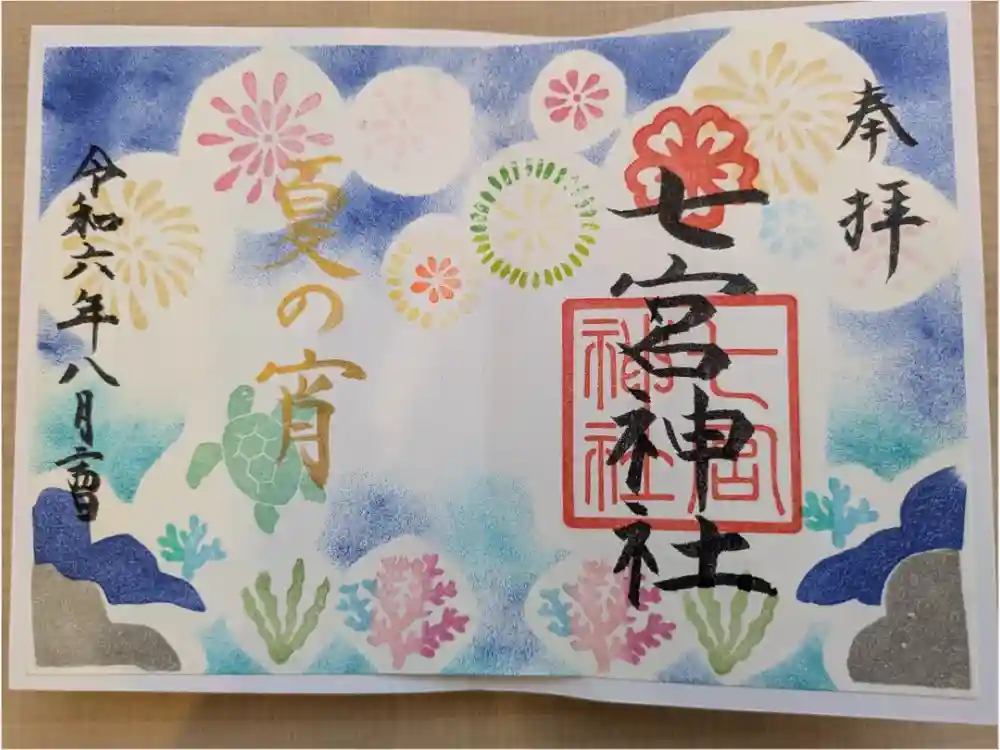 奉拝
七宮神社
七宮
神社
夏の宵
令和六年八月